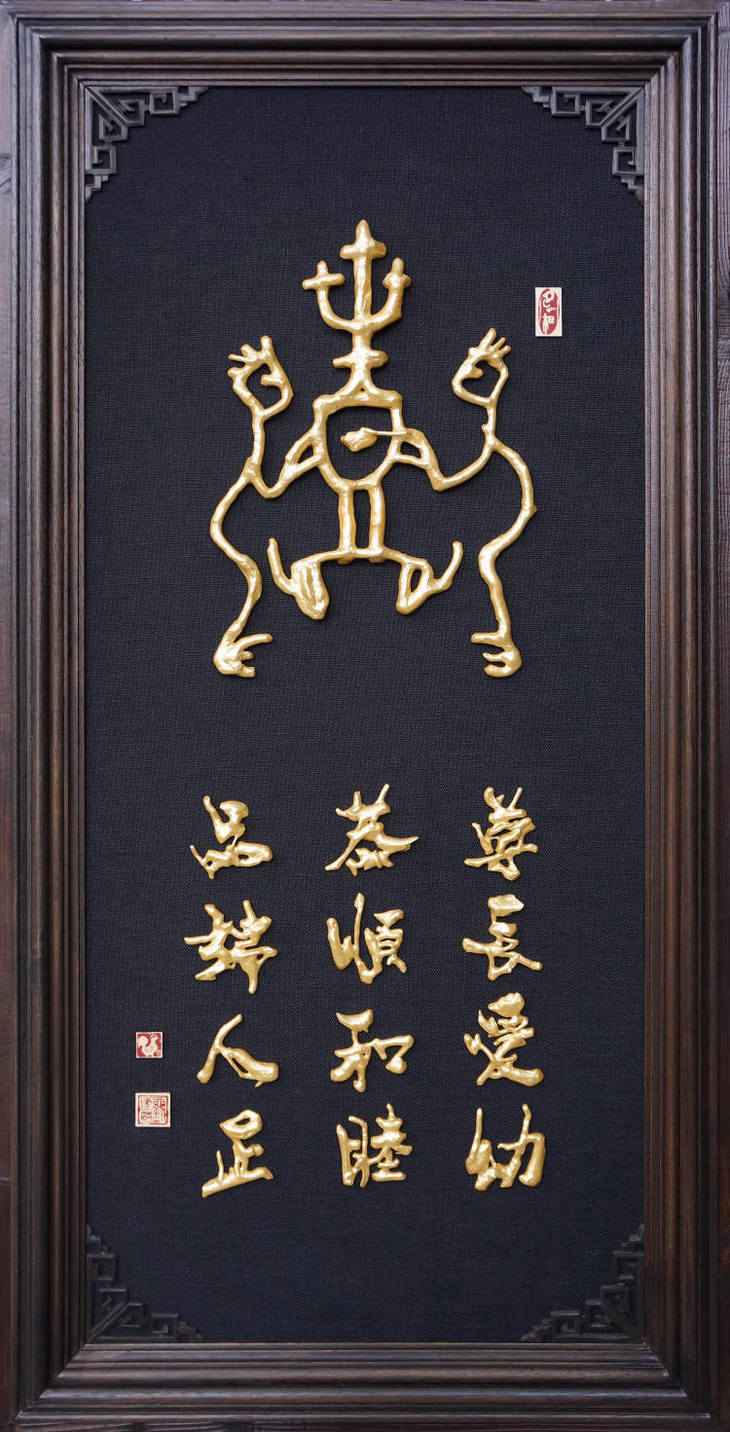 尊長愛幼
恭順和睦
品端人正